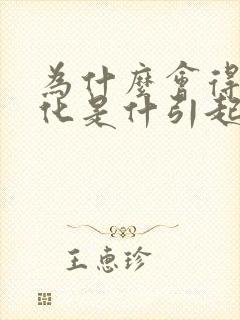 為什麼會得
化是什引起
王惠珍